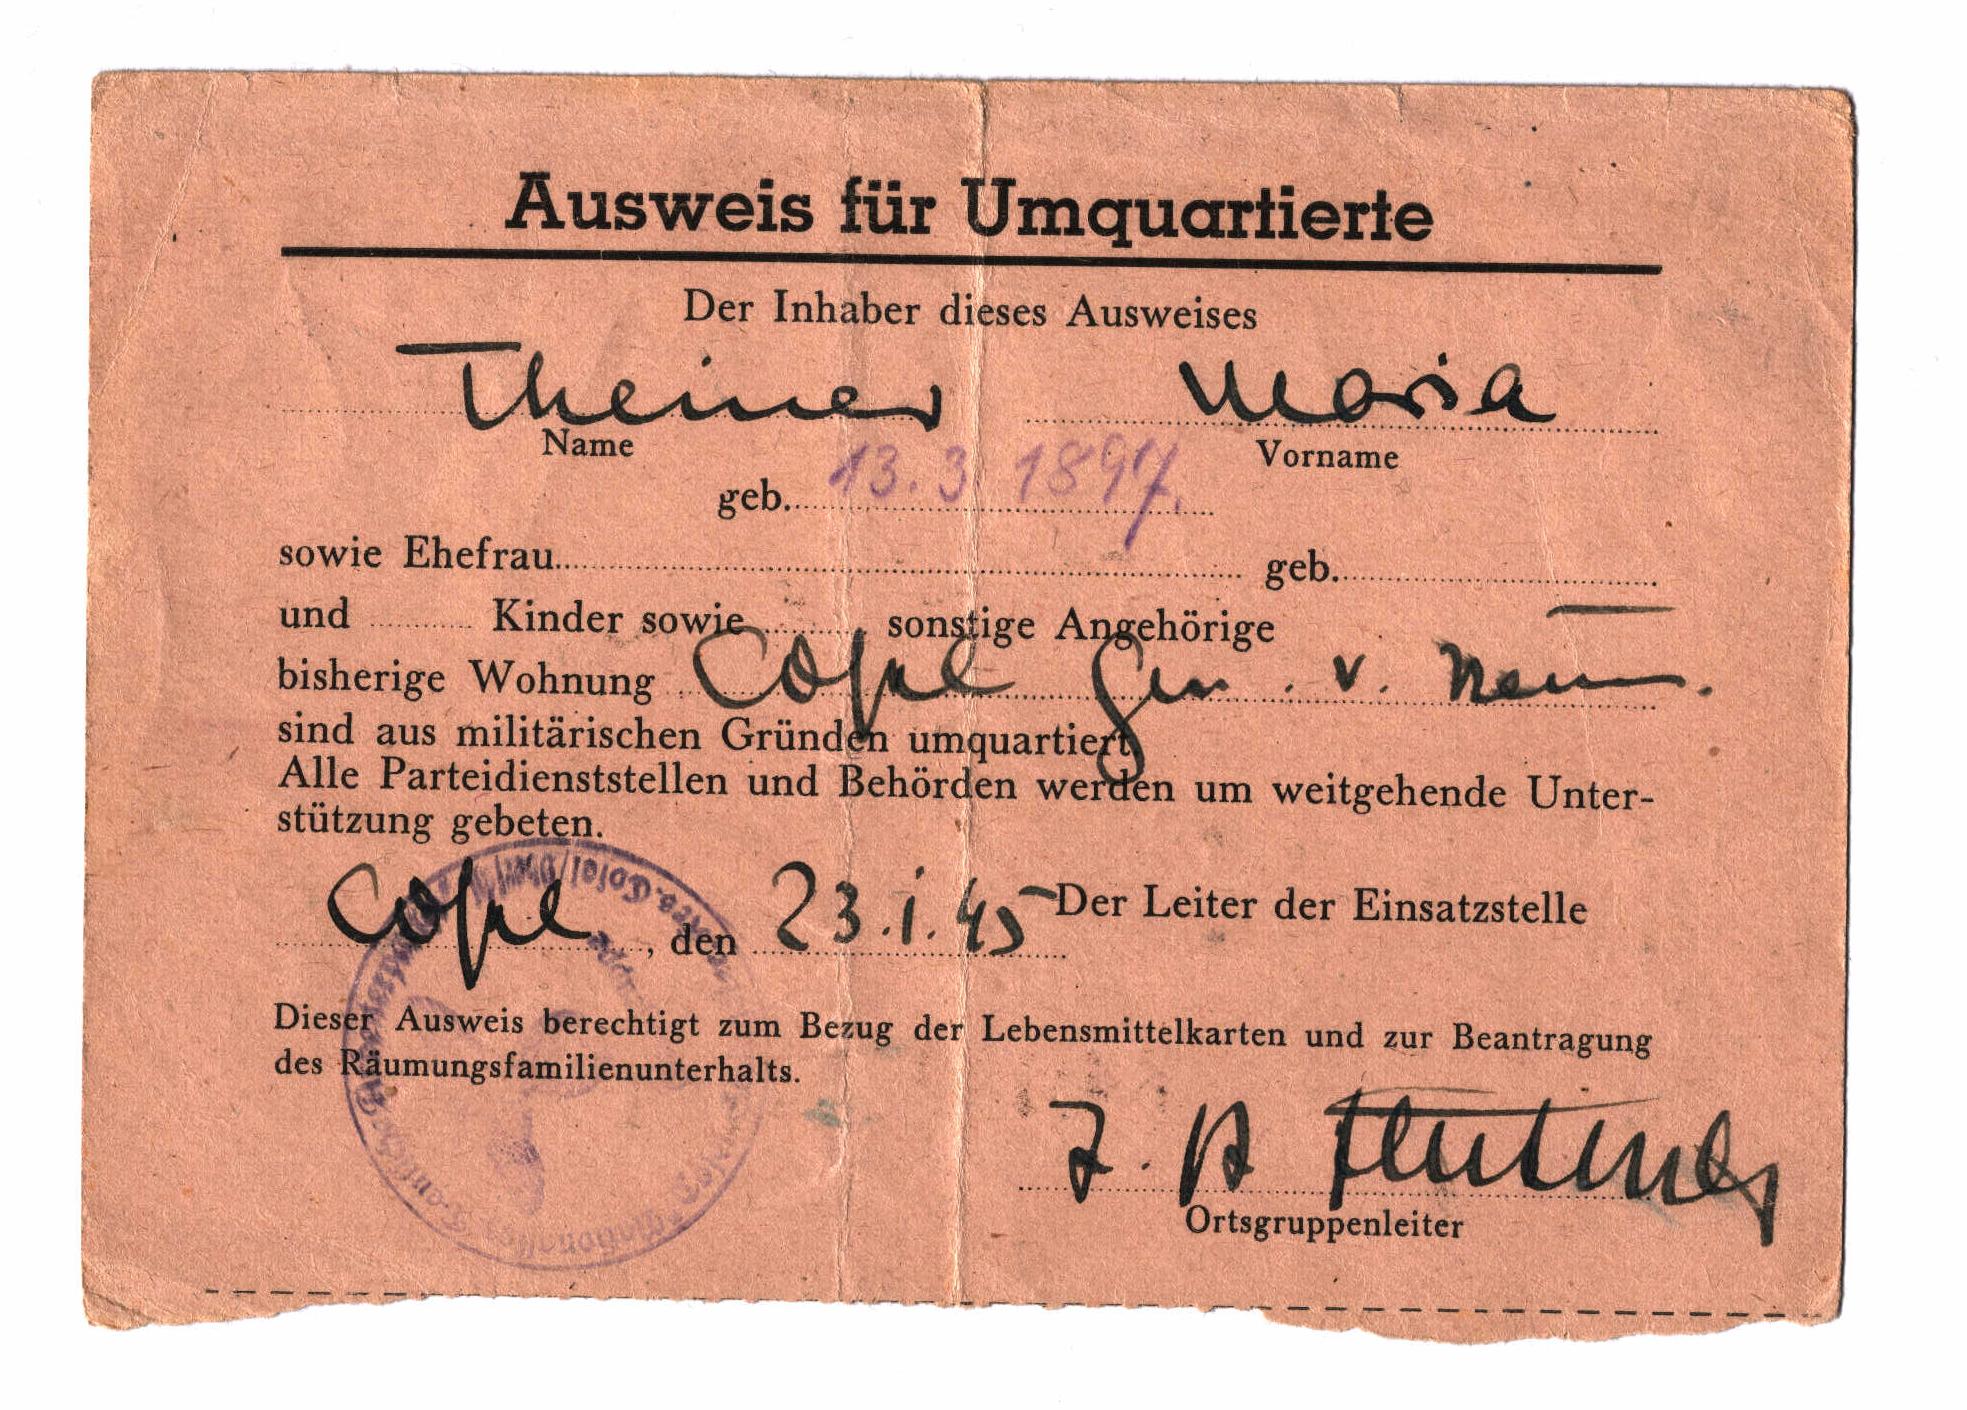 Ausweis für Umquartierte
Der Inhaber dieses Ausweises
Theiner Maria
Name Vorname
geb. 13.3.1897.
sowie Ehefrau geb.
und Kinder sowie sonstige Angehörige
bisherige Wohnung Cosel v.
sind aus militärischen Gründen umquartiert.
Alle Parteidienststellen und Behörden werden um weitgehende Unter-
stützung gebeten.
Cosel, den 23.1.45 Der Leiter der Einsatzstelle
Dieser Ausweis berechtigt zum Bezug der Lebensmittelkarten und zur Beantragung
des Räumungsfamilienunterhalts.
Ortsgruppenleiter